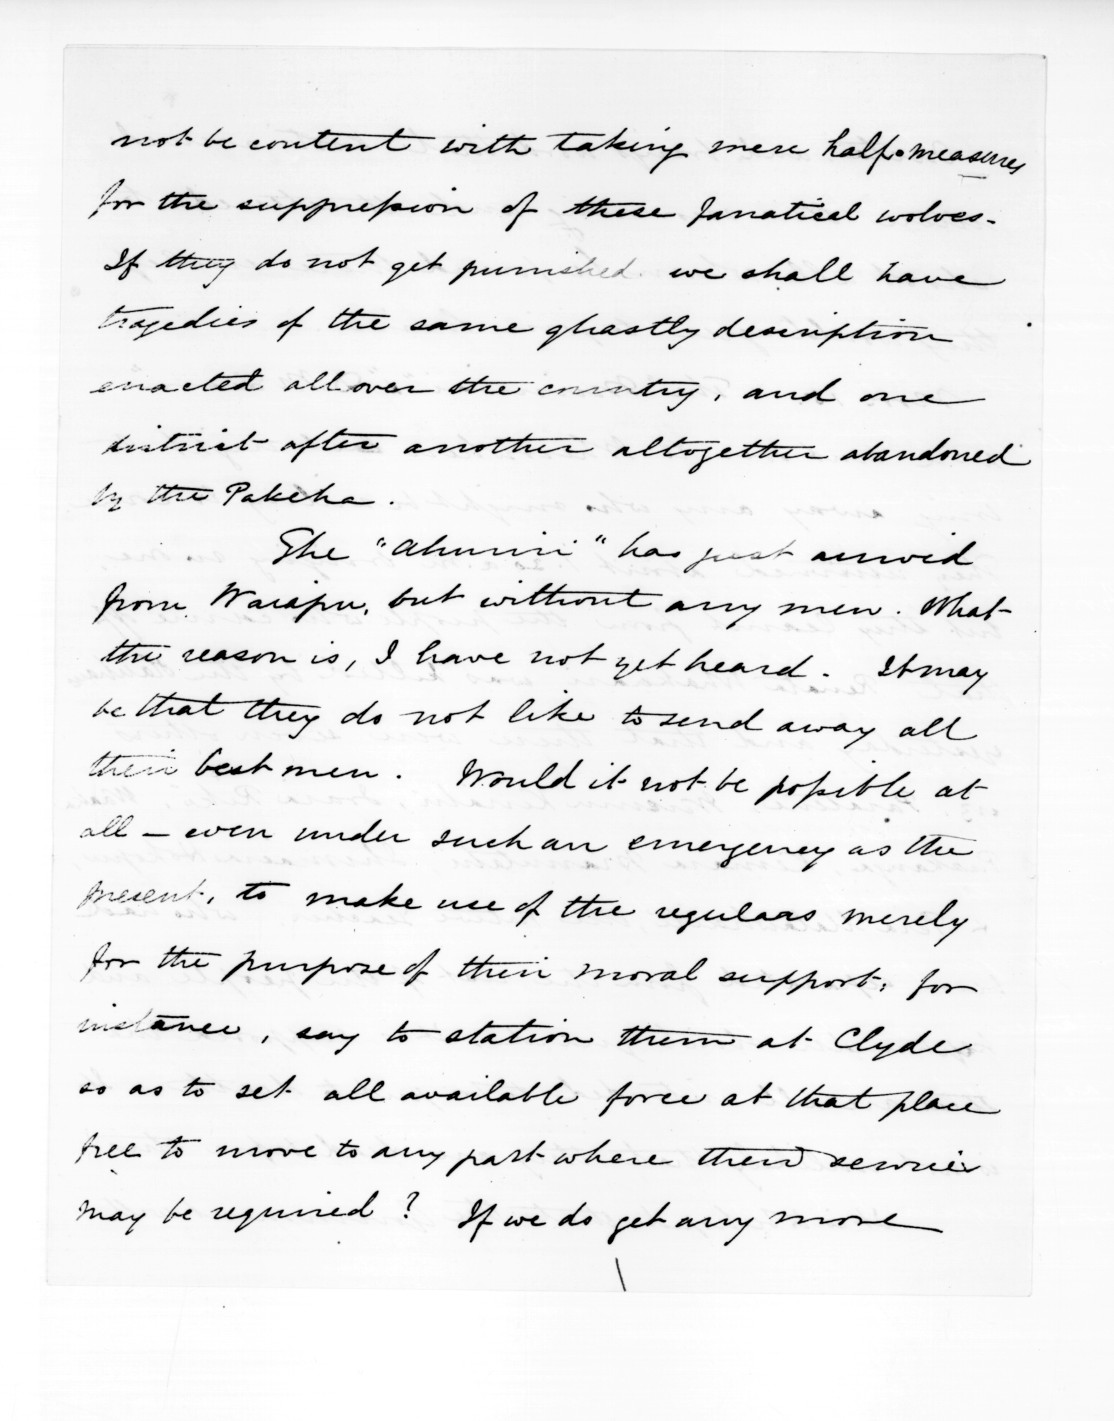 not be content with taking mere half-measures
for the suppression of these fanatical wolves.
If they do not get punished we shall have
tragedies of the same ghastly description
enacted all over the country, and one
district after another altogether abandoned
by the Pakeha.
The "Ahuriri" has just arrived
from Waiapu, but without any men. What
the reason is, I have not yet heard. It may
be that they do not like to send away all
their best men. Would it not be possible at
all — even under such an emergency as the
present, to make use of the regulars merely
for the purpose of their moral support, for
instance, say to station them at Clyde
so as to set all available force at that place
free to move to any part where their service
may be required? If we do get any more